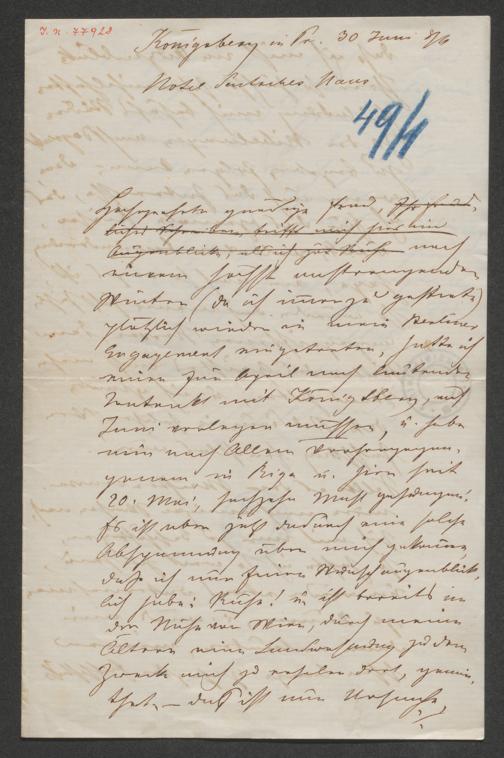 I. N. 77928
Königsberg in Pr. 30 Juni 86
Hotel Deutsches Haus
49/4
Hochgeehrte gnädige Frau, Ihr freund-
liches Schreiben, trifft mich hier im
Augenblick, als ich zur Ruhe nach
einem höchst anstrengenden
Winter (da ich immerzu gastirte)
plötzlich wieder in mein Berliner
Engagement eingetreten, hatte ich
einen für April noch lautenden
Contrakt mit Königsberg, auf
Juni verlegen müssen, u. habe
nun nach Allem Vorhergegan-
genem in Riga u. hier seit
20. Mai, sechzehn Mal gesungen.
Es ist aber jetzt dadurch eine solche
Abspannung über mich gekommen,
daß ich nur einen Wunsch augenblick-
lich habe: Ruhe! u. ist bereits in
der Nähe von Wien, durch meine
Ältern eine Landwohnung zu dem
Zweck mich zu erholen dort, gemie-
thet, – das ist nun Ursache,